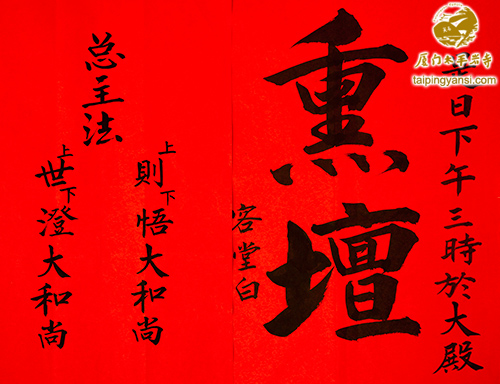 厦门太平岩寺
taipingyansi.com
日下午三時於大殿
熏壇
客堂白
总主法
上則下悟大和尚
上世下澄大和尚